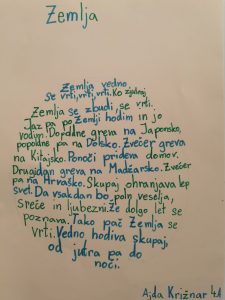 Zemlja
Zemlja vedno
se vrti, vrti, vrti. Ko zjutraj
Zemlja se zbudi, se vrti.
Jaz pa po Zemlji hodim in jo
vodim. Dopoldne greva na Japonsko,
popoldne pa na Dolsko. Zvečer greva
na Kitajsko. Ponoči prideva domov.
Drugi dan greva na Madžarsko. Zvečer
pa na Hrvaško. Skupaj ohranjava lep
svet. Da vsak dan bo poln veselja,
sreče in ljubezni. Že dolgo let se
poznava. Tako pač Zemlja se
vrti. Vedno hodiva skupaj,
od jutra pa do
noči.
Ajda Križnar 4.A